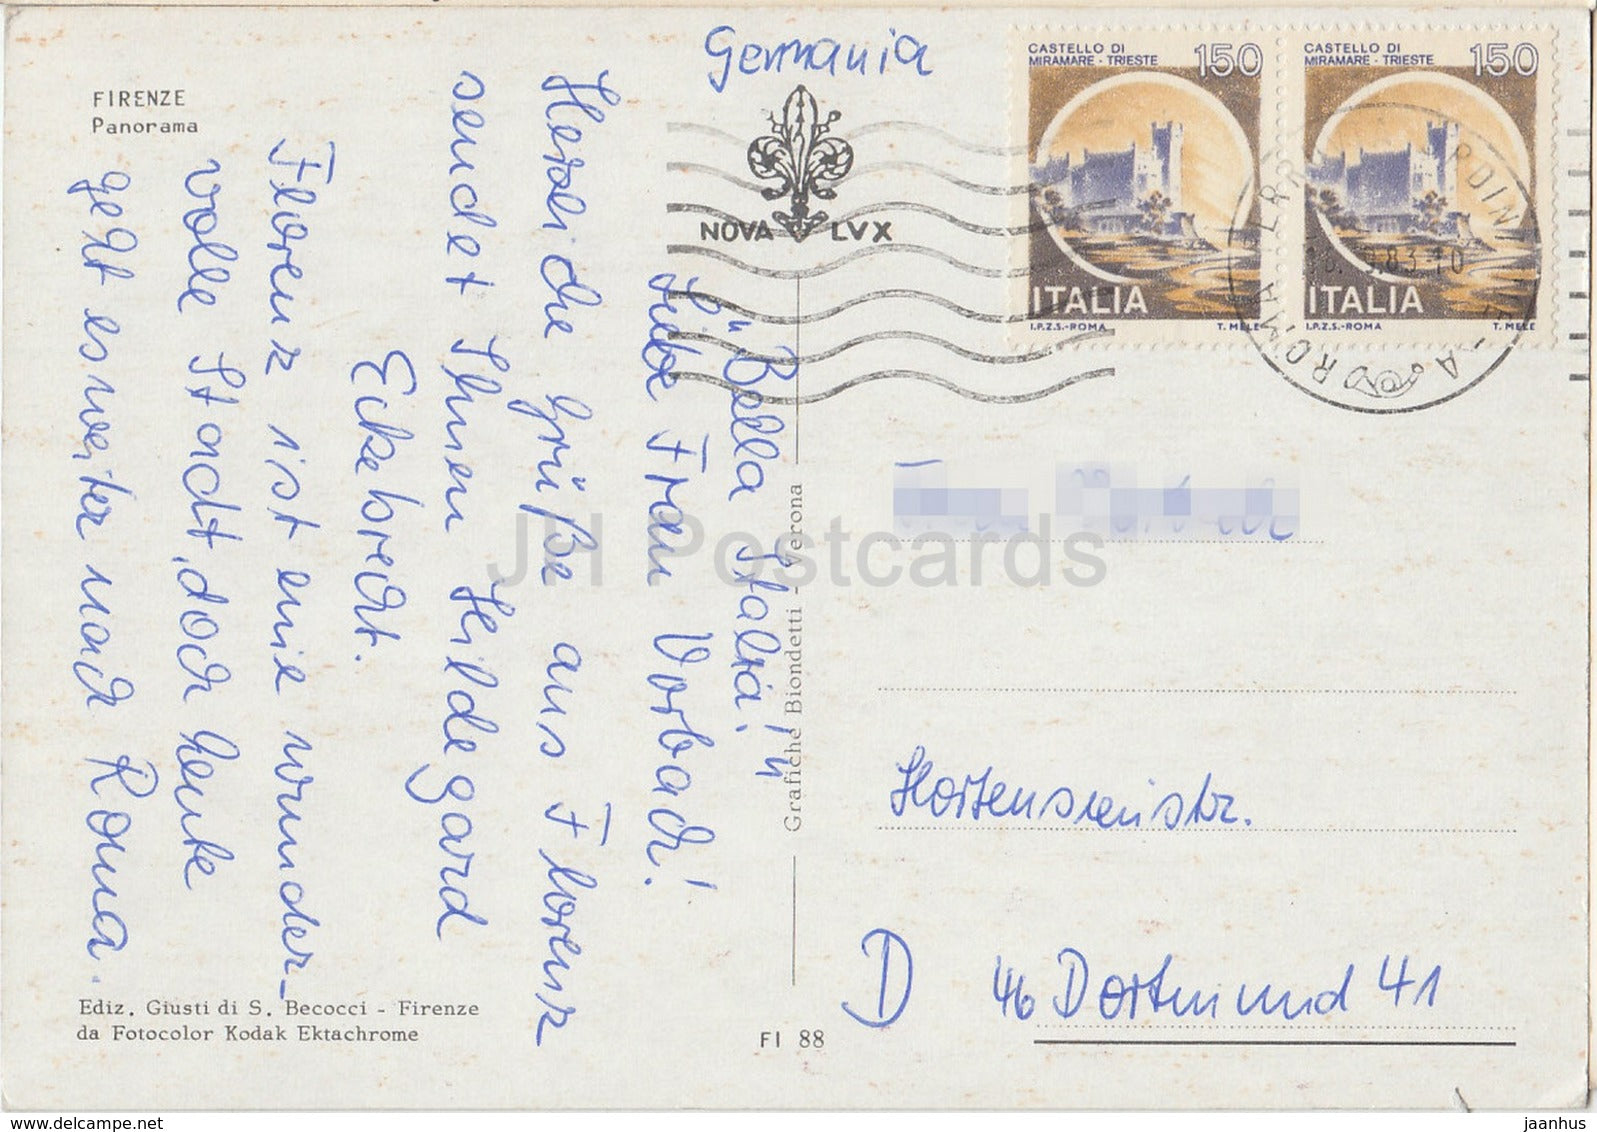 FIRENZE
Panorama
Germania
NOVA LVX
CASTELLO DI
MIRAMARE - TRIESTE 150
ITALIA
I.P.Z.S.-ROMA T. MELE
CASTELLO DI
MIRAMARE - TRIESTE 150
ITALIA
I.P.Z.S.-ROMA T. MELE
ROMA
83-10
"Bella Italia!"
Liebe Frau Vorbach!
Herzliche Grüße aus Florenz
sendet Ihnen Hildegard
Eckebrecht.
Florenz ist eine wunder-
volle Stadt, doch heute
geht es weiter nach Roma.
Grafiche Biondetti - Verona
Hortensienstr.
D 46 Dortmund 41
Ediz. Giusti di S. Becocci - Firenze
da Fotocolor Kodak Ektachrome
FI 88
JH Postcards
www.delcampe.net
jaanhus